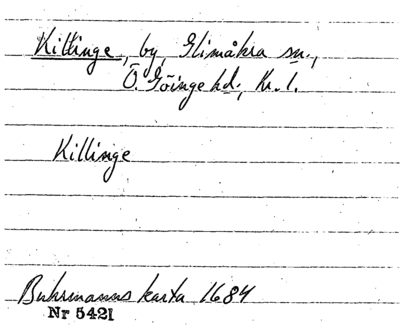 Killinge, by, Glimåkra sn.,
Ö. Göinge hd., Kr. l.
Killinge
Buhrmanns karta 1684
Nr 5421